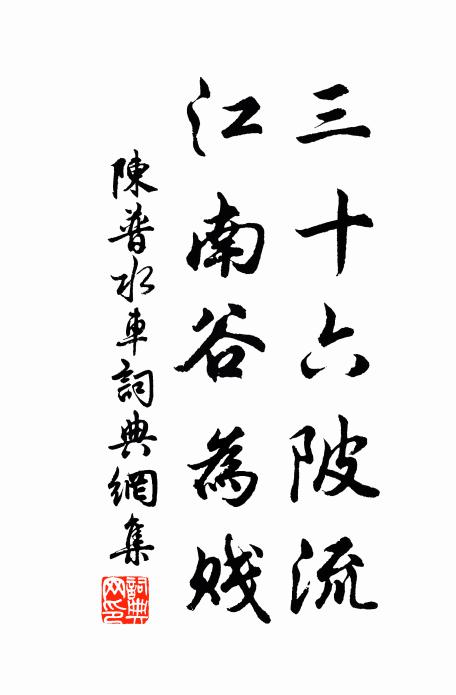 三十六陂流
江南谷為贱
陳普水車詞典網集
詞典